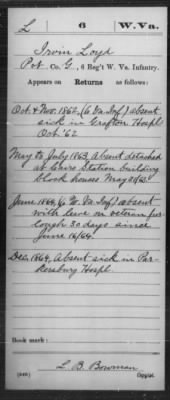 L 6 W.Va.
Irvin Loyd
Pvt. Co. G, 6 Reg't W. Va. Infantry.
Appears on
Returns as follows:
Oct & Nov. 1862, (6 Va. Inf.) absent
sick in Grafton Hospl.
Oct. '62
May to July 1863, Absent detached
at Station building
block houses May 21/63.
June 1864, (6 W. Va. Inf.) absent
with leave on veteran fur-
lough 30 days since
June 16/64.
Dec. 1864, Absent sick in Par-
kersburg Hospl.
Book mark:
L. B. Bowman
Copyist.